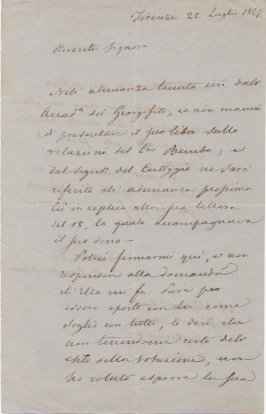 Firenze 22 Luglio 1867
Riverito Signore
Nell' adunanza tenuta ieri dall'
Accad.a dei Georgofili, io non mancai
di presentare il suo libro sulla
relazione del Bembo; e
dal Segret.o del Carteggio ne sarà
riferito all' adunanza prossima
ciò in replica alla sua lettera
del 15, la quale accompagnava
il suo dono.
Potrei fermarmi qui, e non
rispondere alla domanda
ch' Ella mi fa. Pure per
essere aperto con Lei come
soglio con tutti, le dirò che
non tenendomi certo dell'
esito della votazione, non
ho voluto esporre la sua